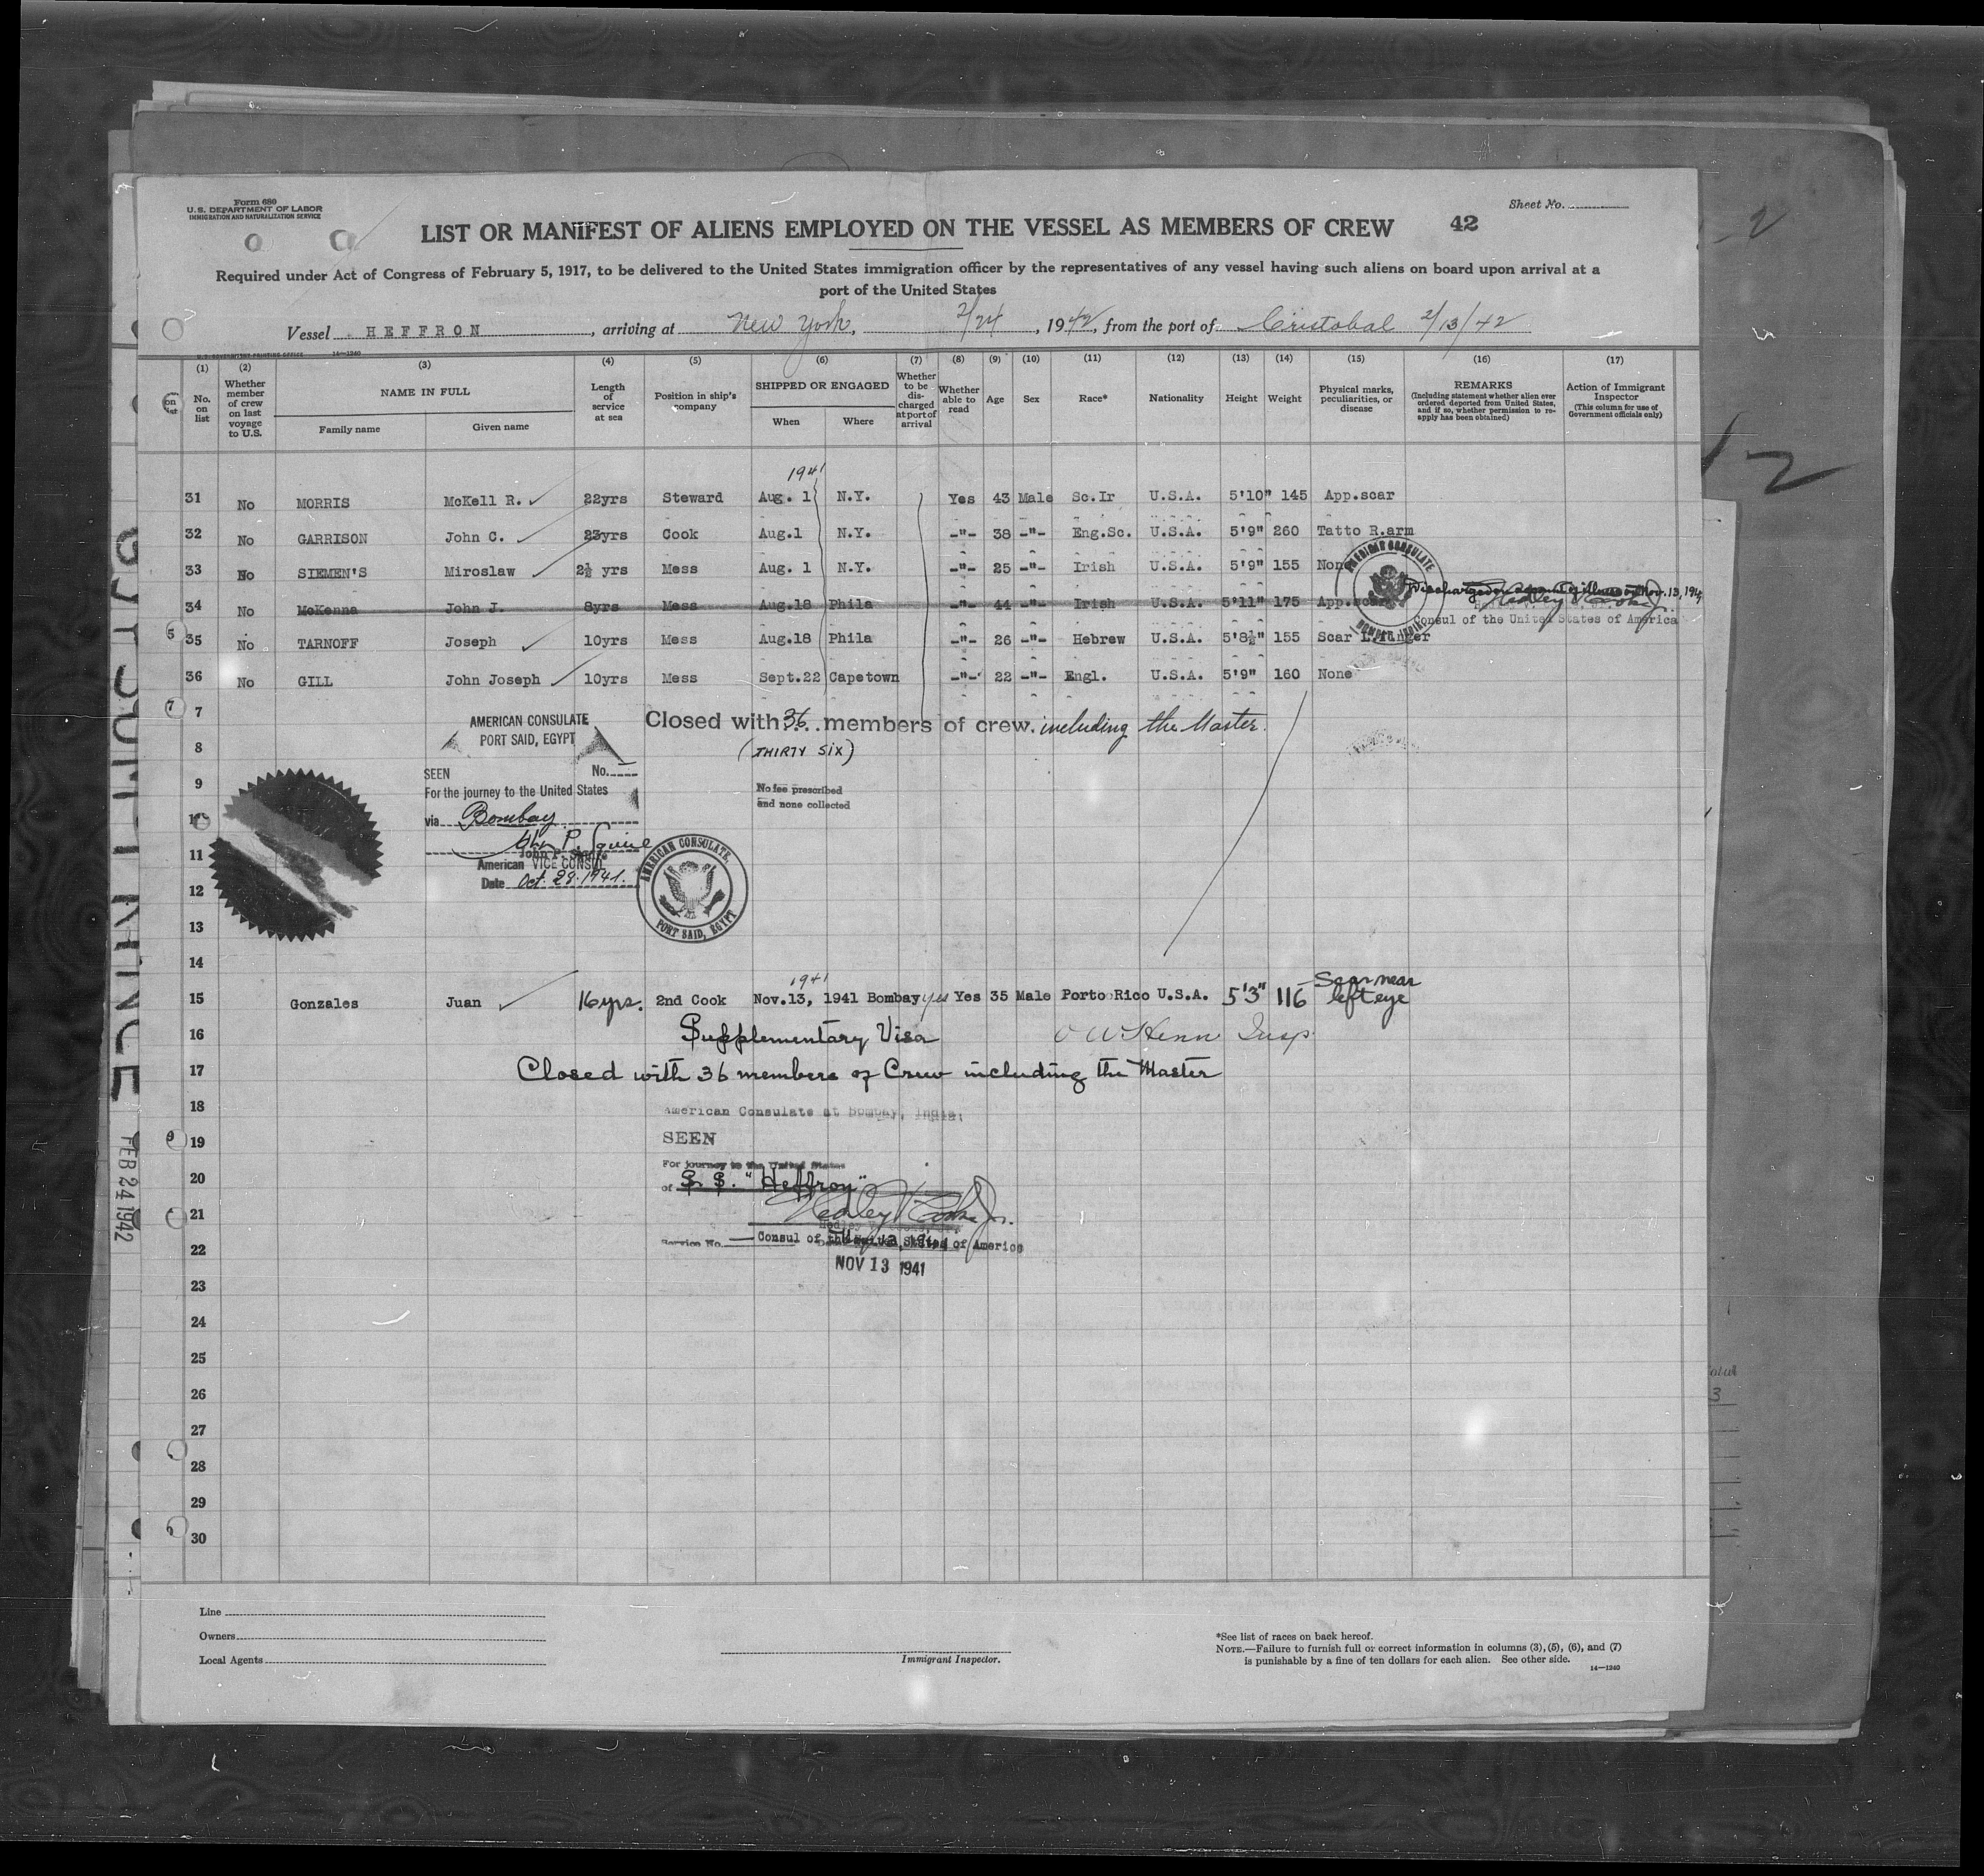 Form 680
U.S. DEPARTMENT OF LABOR
IMMIGRATION AND NATURALIZATION SERVICE
Sheet No.
LIST OR MANIFEST OF ALIENS EMPLOYED ON THE VESSEL AS MEMBERS OF CREW 42
Required under Act of Congress of February 5, 1917, to be delivered to the United States immigration officer by the representatives of any vessel having such aliens on board upon arrival at a
port of the United States
Vessel HEFFRON, arriving at New York, 2/24, 1942, from the port of Cristobal 2/13/42
U.S. GOVERNMENT PRINTING OFFICE 14—1240
(1) No. on list
(2) Whether member of crew on last voyage to U.S.
(3) NAME IN FULL Family name Given name
(4) Length of service at sea
(5) Position in ship's company
(6) SHIPPED OR ENGAGED When Where
(7) Whether to be discharged at port of arrival
(8) Whether able to read
(9) Age
(10) Sex
(11) Race*
(12) Nationality
(13) Height
(14) Weight
(15) Physical marks, peculiarities, or disease
(16) REMARKS (Including statement whether alien ever ordered deported from United States, and if so, whether permission to reapply has been obtained)
(17) Action of Immigrant Inspector (This column for use of Government officials only)
1941
31 No MORRIS McKell R. 22yrs Steward Aug. 1 N.Y. Yes 43 Male Sc.Ir U.S.A. 5'10" 145 App.scar
32 No GARRISON John C. 23yrs Cook Aug.1 N.Y. -"- 38 -"- Eng.Sc. U.S.A. 5'9" 260 Tatto R.arm
33 No SIEMEN'S Miroslaw 2½ yrs Mess Aug. 1 N.Y. -"- 25 -"- Irish U.S.A. 5'9" 155 None
34 No McKenna John J. 8yrs Mess Aug.18 Phila -"- 44 -"- Irish U.S.A. 5'11" 175 App.scar Discharged on account of illness on Nov. 13, 1941
Consul of the United States of America
AMERICAN CONSULATE BOMBAY, INDIA
35 No TARNOFF Joseph 10yrs Mess Aug.18 Phila -"- 26 -"- Hebrew U.S.A. 5'8½" 155 Scar L.finger
36 No GILL John Joseph 10yrs Mess Sept.22 Capetown -"- 22 -"- Engl. U.S.A. 5'9" 160 None
7
Closed with 36 members of crew. including the Master.
(THIRTY SIX)
AMERICAN CONSULATE
PORT SAID, EGYPT
8
SEEN No.
For the journey to the United States
via Bombay
John P. Squire
American VICE CONSUL
Date Oct. 29. 1941.
No fee prescribed
and none collected
AMERICAN CONSULATE, PORT SAID, EGYPT
9
10
11
12
13
14
1941
15 Gonzales Juan 16yrs. 2nd Cook Nov.13, 1941 Bombay yes Yes 35 Male Porto Rico U.S.A. 5'3" 116 Scar near left eye
16 Supplementary Visa O W Henn Insp
17 Closed with 36 members of Crew including the Master
18 American Consulate at Bombay, India.
19 SEEN
For journey to the United States
20 of S.S. "Heffron"
21
22 Service No. Consul of the United States of America
NOV 13 1941
23
24
25
26
27
28
29
30
FEB 24 1942
Line
Owners
Local Agents
Immigrant Inspector.
*See list of races on back hereof.
NOTE.—Failure to furnish full or correct information in columns (3), (5), (6), and (7)
is punishable by a fine of ten dollars for each alien. See other side.
14—1240